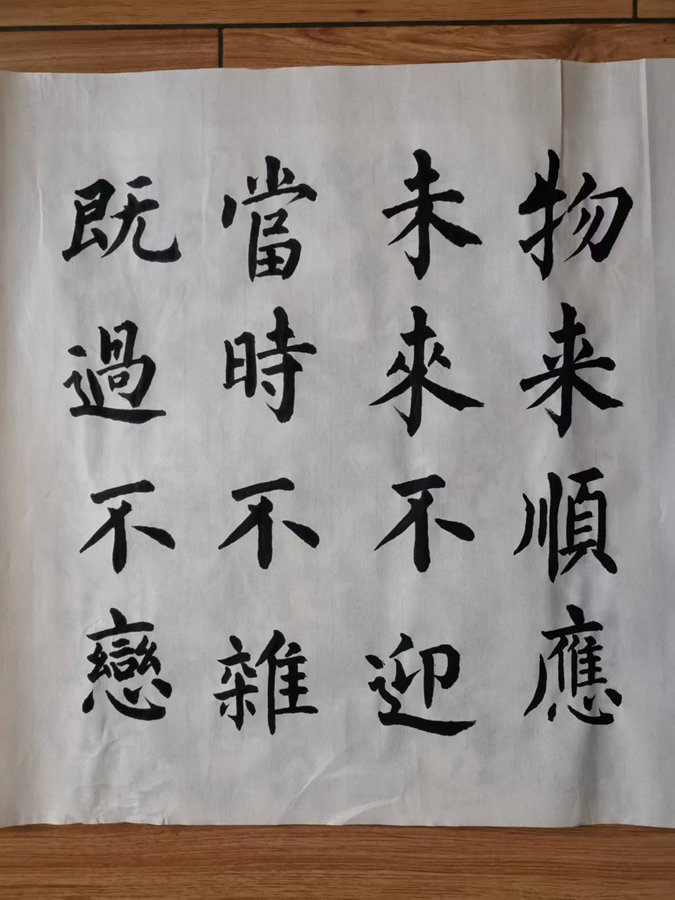 物来順應
未來不迎
當時不雜
既過不戀